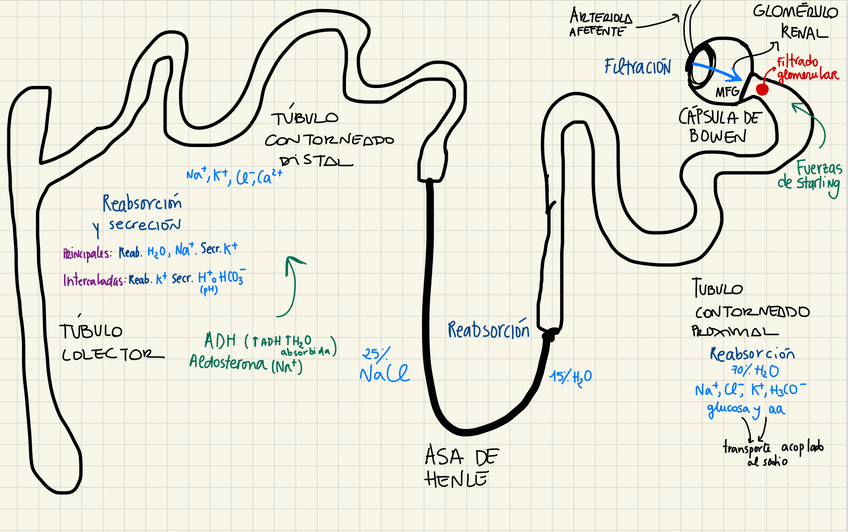 ARTERIOLA
AFERENTE
GLOMÉRULO
RENAL
Filtración
MFG
Filtrado
glomerular
CÁPSULA DE
BOWEN
Fuerzas
de Starling
TÚBULO
CONTORNEADO
DISTAL
Na⁺, K⁺, Cl⁻, Ca²⁺
Reabsorción
y secreción
Principales: Reab. H₂O, Na⁺. Secr. K⁺
Intercaladas: Reab. K⁺ Secr. H⁺ o HCO₃⁻
(pH)
TÚBULO
COLECTOR
ADH (↑ADH ↑H₂O
absorbida)
Aldosterona (Na⁺)
25%
NaCl
Reabsorción
15% H₂O
ASA DE
HENLE
TUBULO
CONTORNEADO
PROXIMAL
Reabsorción
70% H₂O
Na⁺, Cl⁻, K⁺, H₃CO⁻
glucosa y aa
transporte acoplado
al sodio